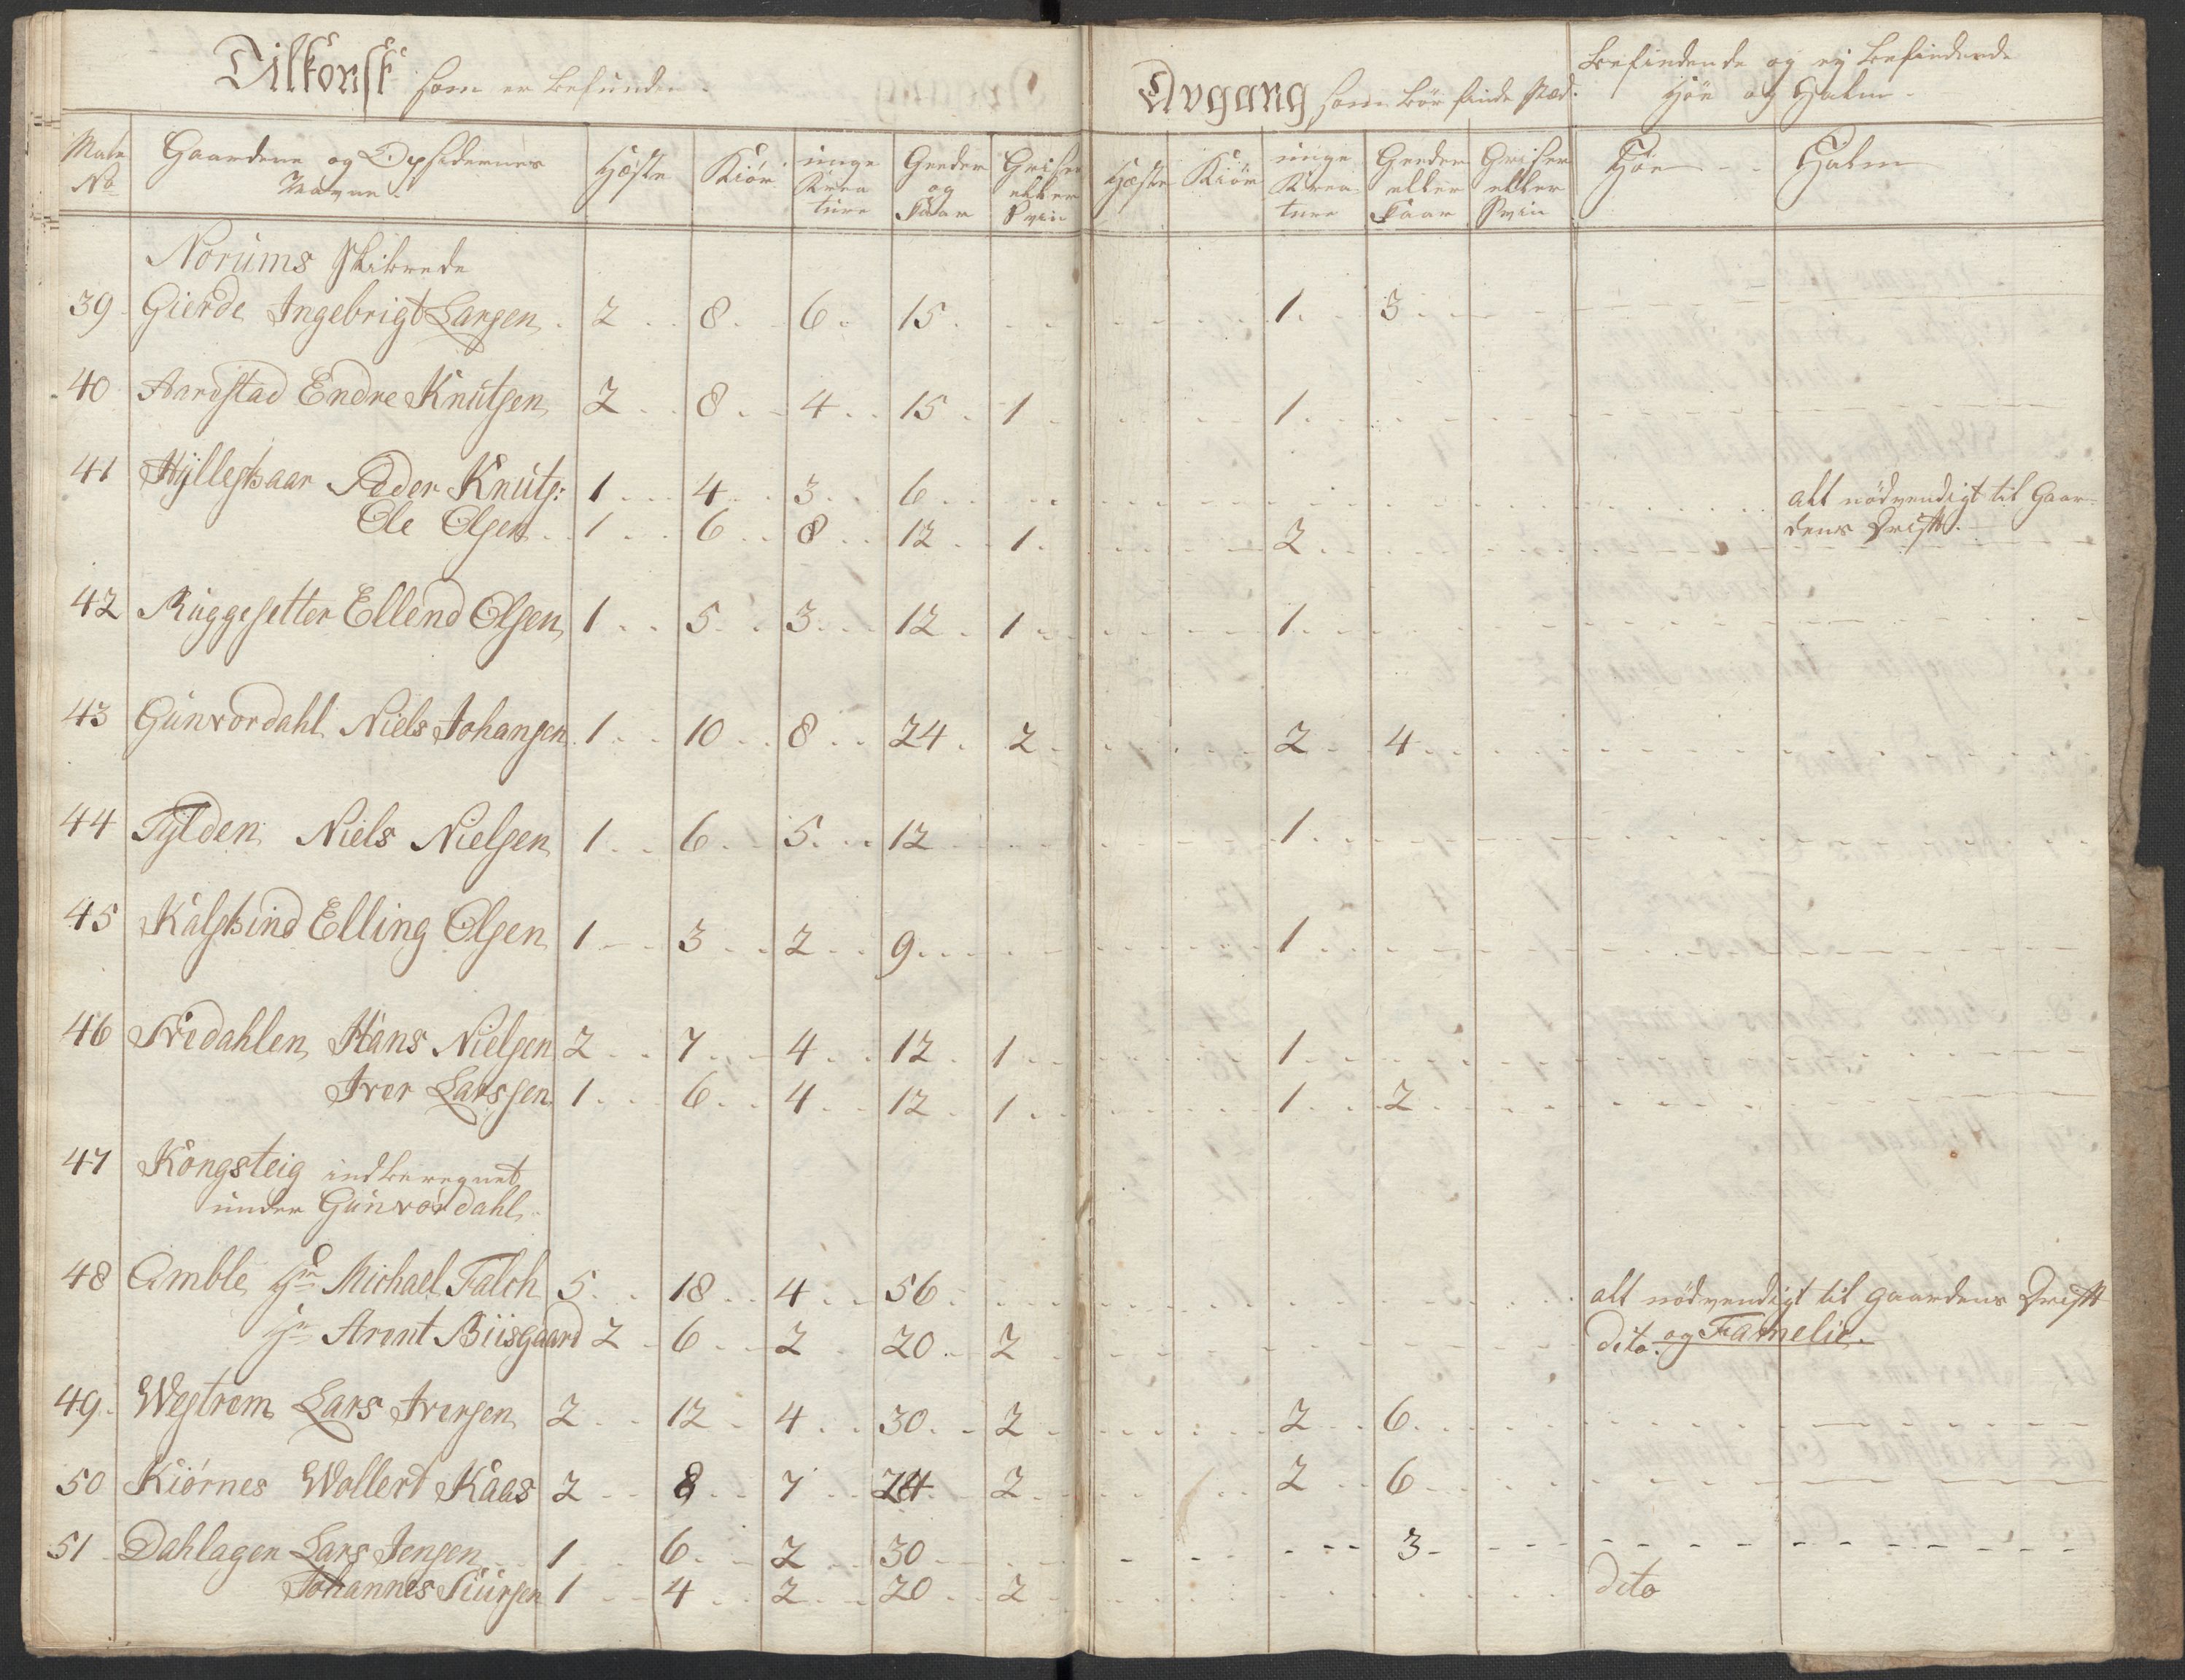 Tilkonst som er befunden.
Avgang som bör finde Sted.
Befindende og ej befindende
Höe og Halm.
Matr No | Gaardene og Opsidernes Navne. | Hæste | Kiör | unge Kreature | Geeder og Faar | Griser eller Sviin | Hæste | Kiör | unge Kreature | Geeder eller Faar | Griser eller Sviin | Höe | Halm
Norums Skibrede
39 Gierde Ingebrigt Larsen 2 8 6 15 1 3
40 Aarestad Endre Knutsen 2 8 4 15 1 1
41 Hyllestkaar Peder Knuts: 1 4 3 6 alt nödvendigt til Gaar-
dens Drift.
Ole Olsen 1 6 8 12 1 2
42 Ruggesetter Ellend Olsen 1 5 3 12 1 1
43 Gunvordahl Niels Johansen 1 10 8 24 2 2 4
44 Tylden Niels Nielsen 1 6 5 12 1
45 Kalskind Elling Olsen 1 3 2 9 1
46 Svedahlen Hans Nielsen 2 7 4 12 1 1
Iver Larssen 1 6 4 12 1 1 2
47 Kongsteig indberegnet
under Gunvordahl
48 Amble Hr Michael Falch 5 18 4 56 alt nödvendigt til gaardens Drift
og Famelie.
Hr Arent Biisgaard 2 6 2 20 2 dito.
49. Westrem Lars Iversen 2 12 4 30 2 2 6
50 Kiörnes Wollert Kaas 2 8 7 24 2 2 6
51 Dahlagen Lars Jensen 1 6 2 30 3
Johannes Siursen 1 4 2 20 2 dito